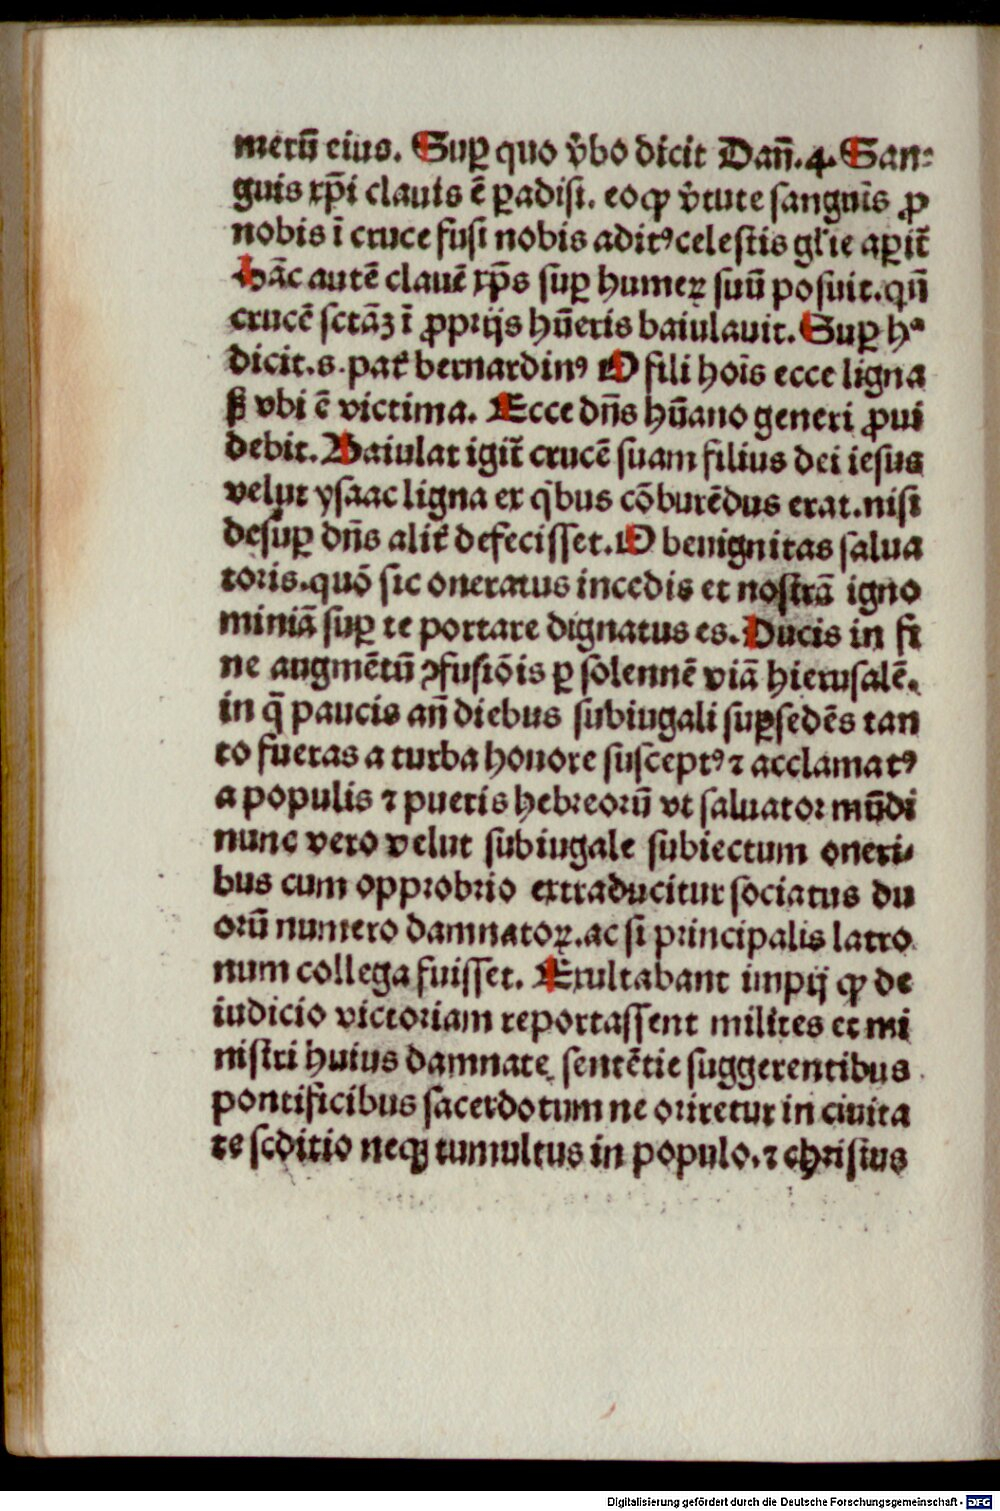 merū eius. Suꝑ quo v̓bo dicit Dañ.4. San⸗
guis xp̄i clauis ē ꝑadisi. eo ꝙ v̓tute sanguīs ꝓ
nobis ī cruce fusi nobis aditꝰ celestis gl̓ie aꝑit̓
hāc autē clauē xp̄s suꝑ humeꝝ suū posuit. qn̄
crucē sctāʒ ī ꝓprijs hūeris baiulauit. Suꝑ hᵃ
dicit.s.pat̓ bernardinꝰ O fili hoīs ecce ligna
ꝭ vbi ē victima. Ecce dn̄s hūano generi ꝓui
debit. Baiulat igit̓ crucē suam filius dei iesus
velut ysaac ligna ex qͥbus cōburēdus erat. nisi
desuꝑ dn̄s alit̓ defecisset. O benignitas salua
toris. quō sic oneratus incedis et nostrā igno
miniā suꝑ te portare dignatus es. Ducis in fi
ne augmētū ꝯfusiōis ꝑ solennē viā hierusalē.
in q̄ paucis an̄ diebus subiugali suꝑsedēs tan
to fueras a turba honore susceptꝰ ⁊ acclamatꝰ
a populis ⁊ pueris hebreorū vt saluator mūdi
nunc vero velut subiugale subiectum oneri⸗
bus cum opprobrio extraducitur sociatus du
orū numero damnatoꝝ. ac si principalis latro
num collega fuisset. Exultabant impij ꝙ de
iudicio victoriam reportassent milites et mi
nistri huius damnate sentētie suggerentibus
pontificibus sacerdotum ne oriretur in ciuita
te seditio neqꝫ tumultus in populo. ⁊ christus
Digitalisierung gefördert durch die Deutsche Forschungsgemeinschaft - DFG